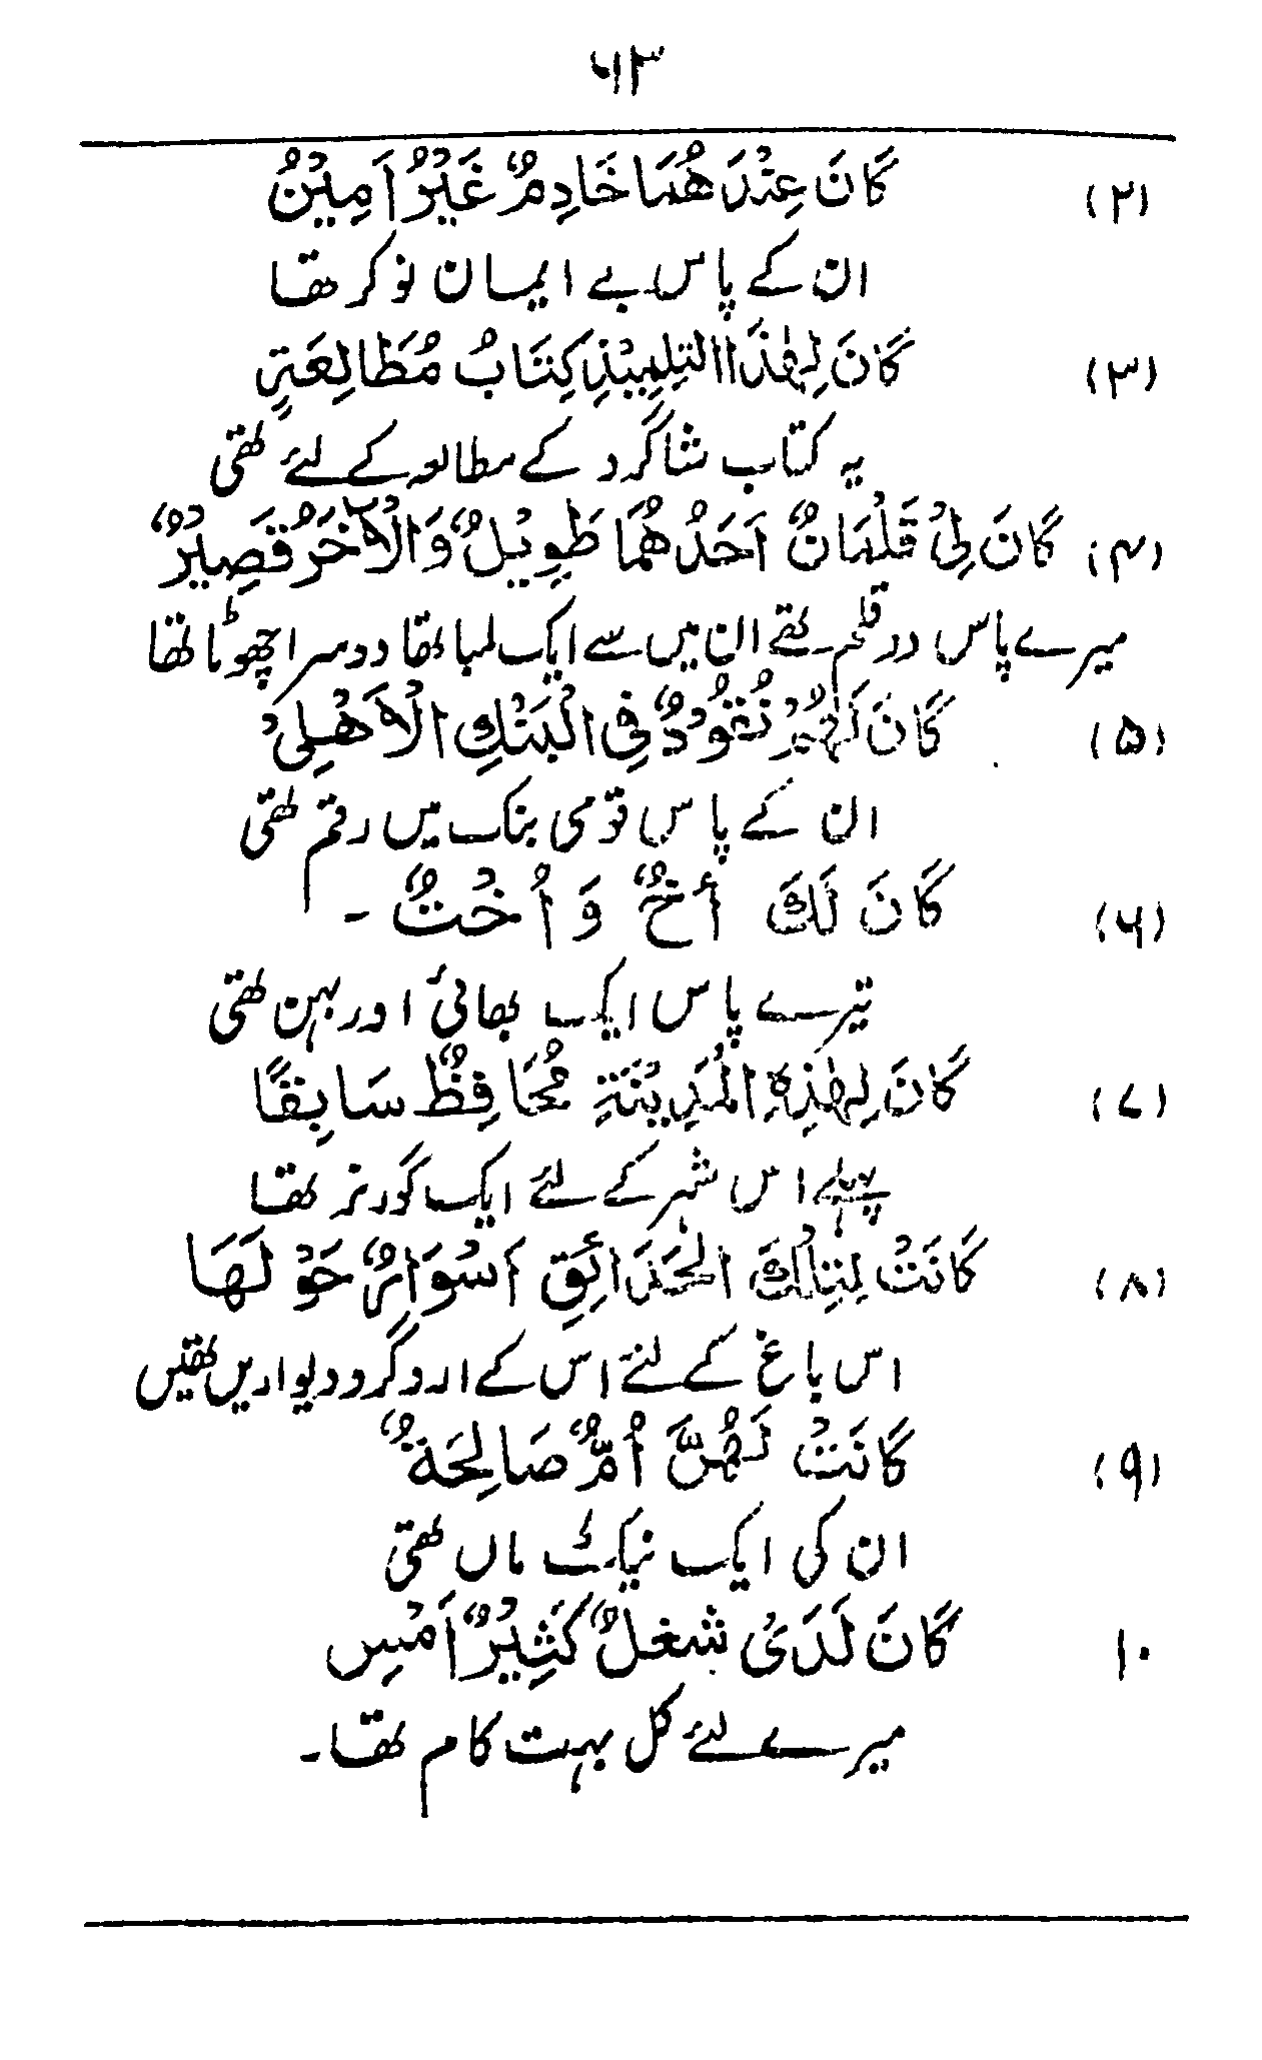 ۶۱۳
(۲) كَانَ عِنْدَ هُمَا خَادِمٌ غَيْرُ اَمِيْنُ
ان کے پاس بے ایمان نوکر تھا
(۳) كَانَ لِهٰذَا التِلِمِيْذِ كِتَابُ مُطَالِعَةٍ
یہ کتاب شاگرد کے مطالعہ کے لئے تھی
(۴) كَانَ لِىْ قَلْمَانٌ اَحَدُ هُمَا طَوِيْلٌ وَالْاٰخَرُ قَصِيْرٌ
میرے پاس دو قلم تھے ان میں سے ایک لمبا تھا دوسرا چھوٹا تھا
(۵) كَانَ لَهُمْ نُقُوْدٌ فِى الْبَنْكِ الْاَهْلِىْ
ان کے پاس قومی بنک میں رقم تھی
(۶) كَانَ لَكَ أَخٌ وَ اُخْتٌ -
تیرے پاس ایک بھائی اور بہن تھی
(۷) كَانَ لِهٰذِهِ الْمَدِيْنَةِ مُحَافِظٌ سَابِقًا
پہلے اس شہر کے لئے ایک گورنر تھا
(۸) كَانَتْ لِتِلْكَ الْحَدَائِقِ اَسْوَارٌ حَوْ لَهَا
اس باغ کے لئے اس کے اردگرد دیواریں تھیں
(۹) كَانَتْ لَهُنَّ اُمٌّ صَالِحَةٌ
ان کی ایک نیک ماں تھی
۱۰ كَانَ لَدَىْ شغلٌ كَثِيْرٌ اَمْسِ
میرے لئے کل بہت کام تھا۔